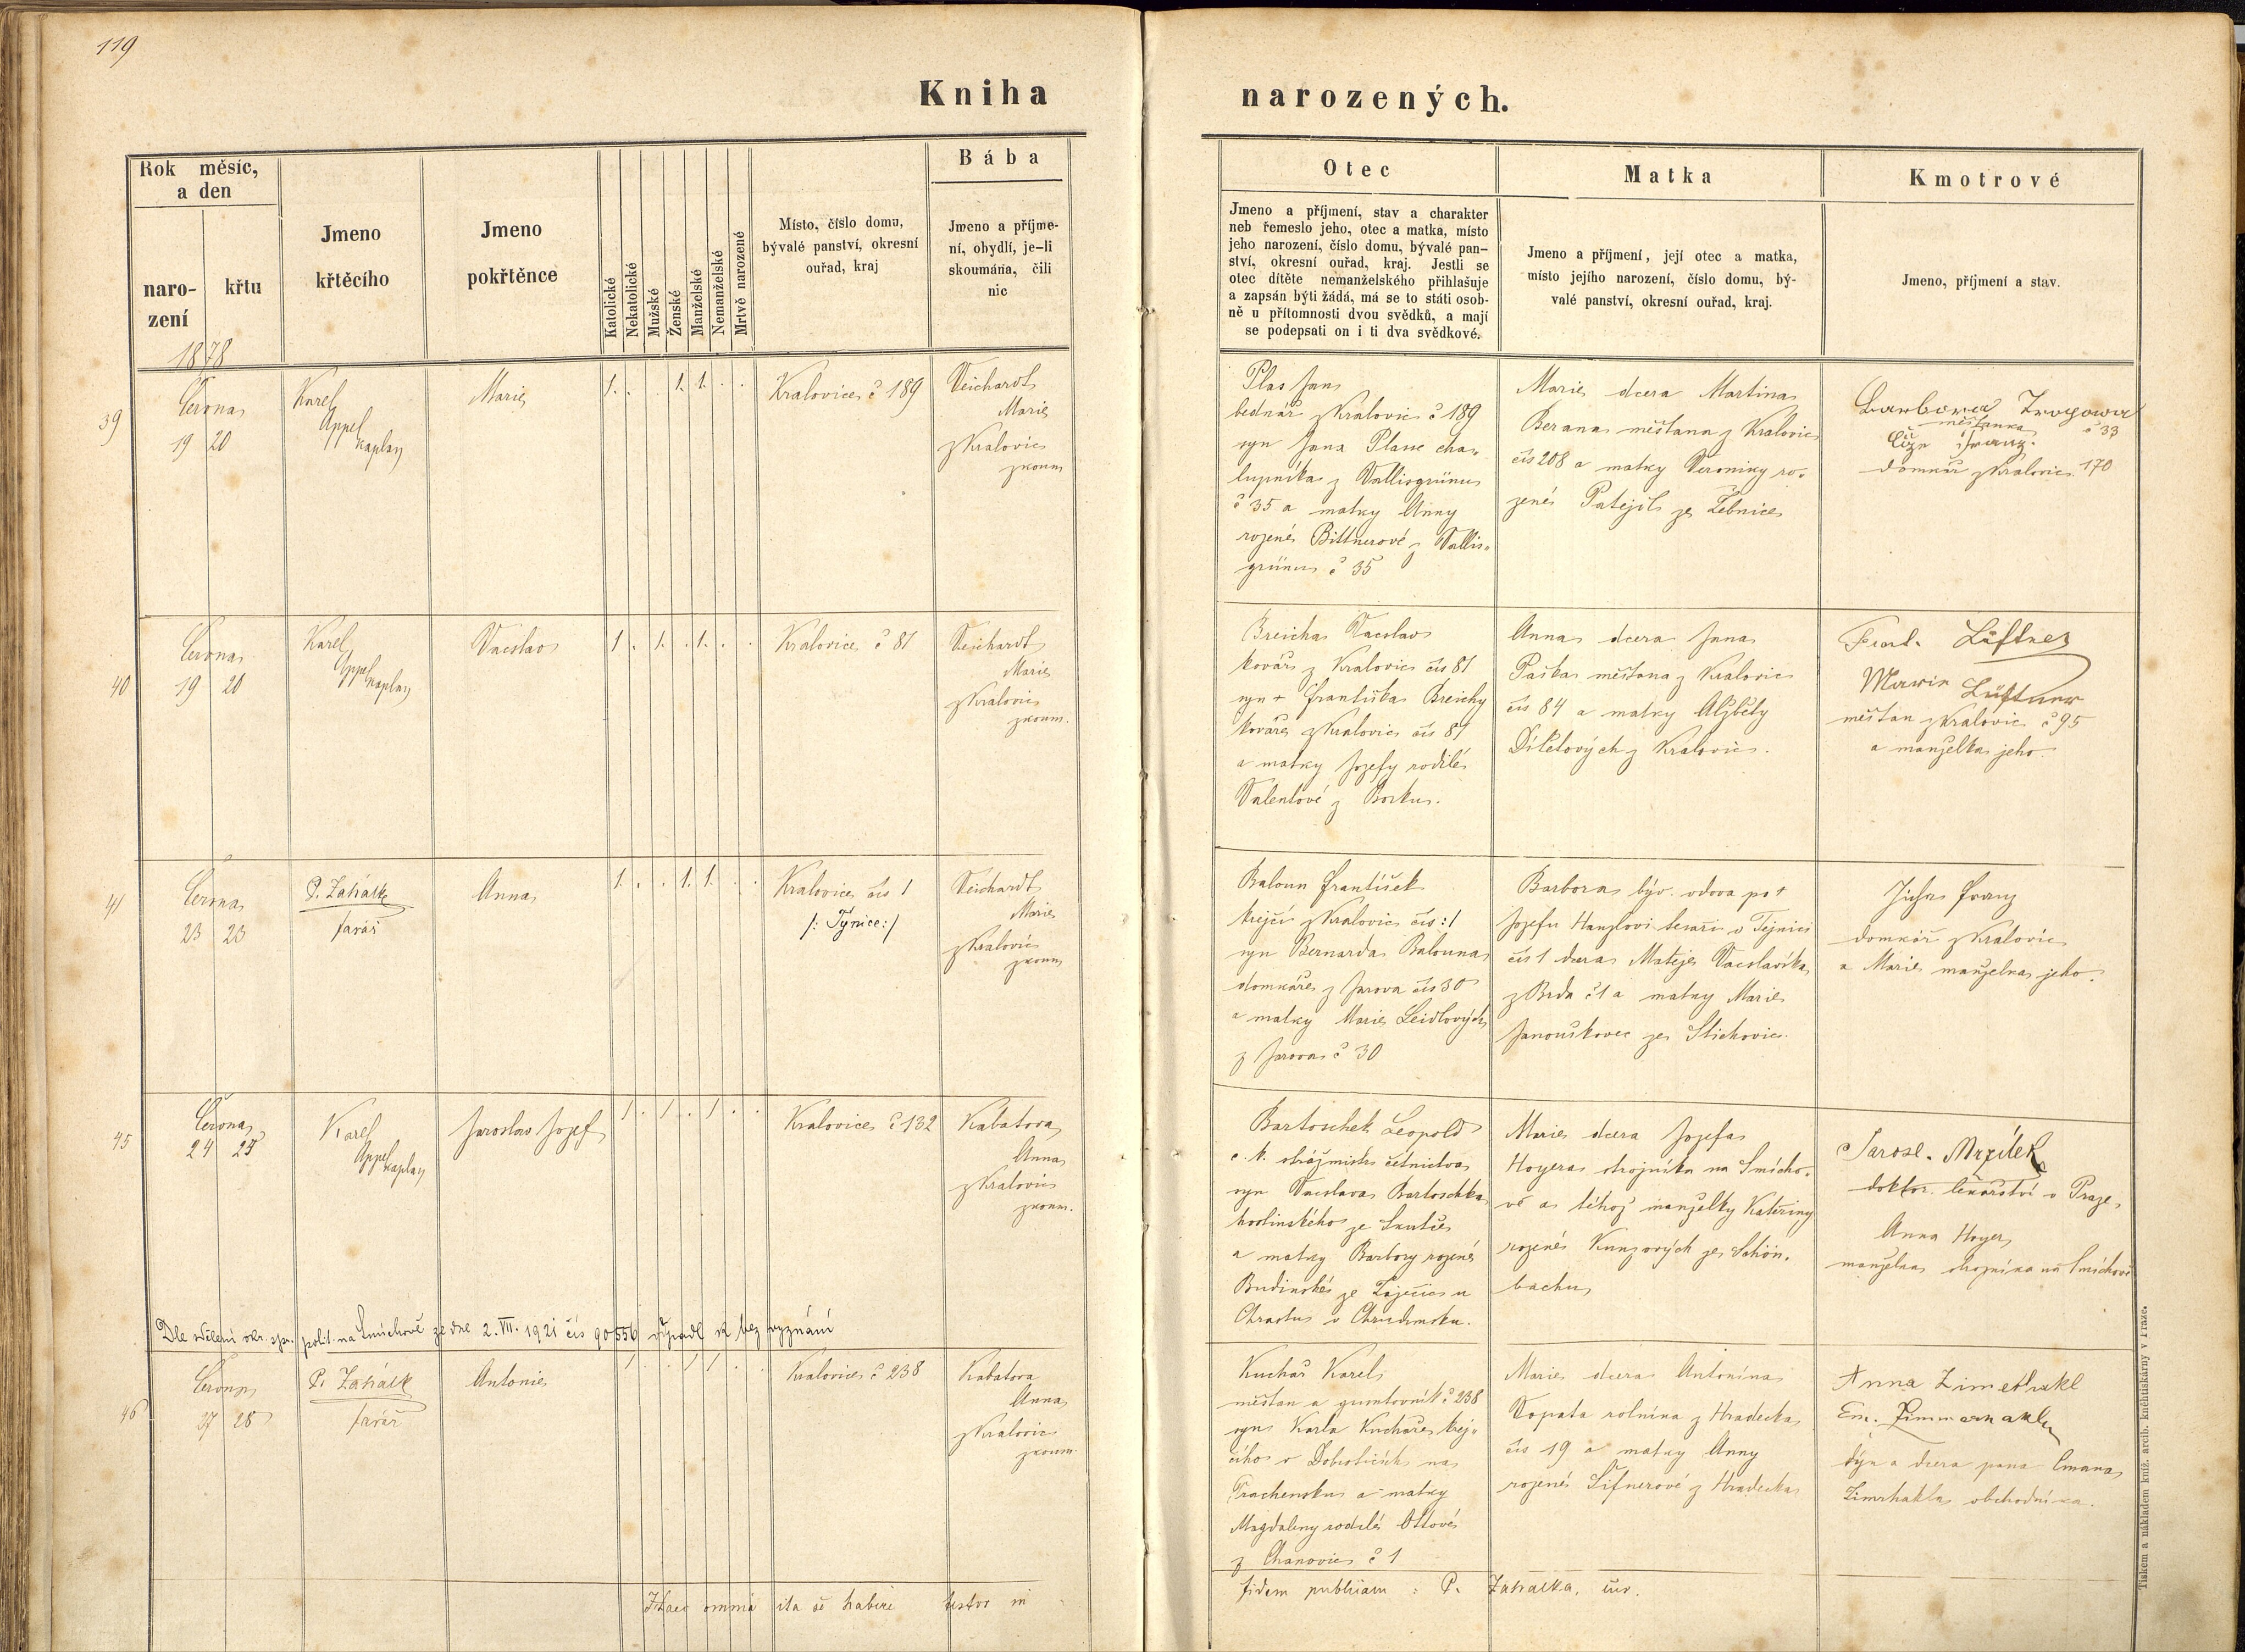 119
Kniha narozených.
Rok měsíc,
a den
naro-
zení
křtu
Jmeno
křtěcího
Jmeno
pokřtěnce
Katolické
Nekatolické
Mužské
Ženské
Manželské
Nemanželské
Mrtvě narozené
Místo, číslo domu,
bývalé panství, okresní
ouřad, kraj
Bába
Jmeno a příjme-
ní, obydlí, je-li
skoumána, čili
nic
Otec
Jmeno a příjmení, stav a charakter
neb řemeslo jeho, otec a matka, místo
jeho narození, číslo domu, bývalé pan-
ství, okresní ouřad, kraj. Jestli se
otec dítěte nemanželského přihlašuje
a zapsán býti žádá, má se to státi osob-
ně u přítomnosti dvou svědků, a mají
se podepsati on i ti dva svědkové.
Matka
Jmeno a příjmení, její otec a matka,
místo jejího narození, číslo domu, bý-
valé panství, okresní ouřad, kraj.
Kmotrové
Jmeno, příjmení a stav.
1878
39
Června
19 20
Karel
Appel
kaplan
Marie
1. . . 1. 1. . .
Kralovice č 189
Veichardt
Marie
z Kralovic
zkoum
Plas Jan
bednář z Kralovic č 189
syn Jana Plasse cha-
lupníka z Vallisgrünu
č 35 a matky Anny
rozené Bittnerové z Vallis-
grünu č 35
Marie dcera Martina
Berana měšťana z Kralovic
čís 208 a matky Veroniky ro-
zené Patejdl ze Žebnice
Barbora
měštanka č 33
Franz
domkář z Kralovic 170
40
Června
19 20
Karel
Appel
kaplan
Vacslav
1 . 1. . 1. . .
Kralovice č 81
Veichardt
Marie
z Kralovic
zkoum.
Breicha Vacslav
kovář z Kralovic čís 81
syn + Františka Breichy
kováře z Kralovic čís 81
a matky Jozefy rodilé
Valentové z Borku.
Anna dcera Jana
Paška měšťana z Kralovic
čís 84 a matky Alžběty
z Kralovic.
Lüftner
Marie Lüftner
měštan z Kralovic č 95
a manželka jeho
41
Června
23 23
P. Zahálk
farář
Anna
1. . . 1. 1. . .
Kralovice čís 1
/: Týnice :/
Veichardt
Marie
z Kralovic
zkoum
Baloun František
krejčí z Kralovic čís: 1
syn Bernarda Balouna
domkáře z Jarova čís 30
a matky Marie Leidlových
z Jarova č 30
Barbora býv. vdova po +
Jozefu Hanzlovi tesaři v Tejnici
čís 1 dcera Matěje Vacslavíka
z Brda č 1 a matky Marie
Janouškovec ze Stichovic.
Franz
domkář z Kralovic
a Marie manželka jeho.
45
Června
24 25
Karel
Appel
kaplan
Jaroslav Jozef
1 . 1 . 1 . .
Kralovice č 132
Kabatova
Anna
z Kralovic
zkoum.
Bartoschek Leopold
c. k. strážmistr četnictva
syn Vacslava Bartoschka
hostinského ze Skutče
a matky Barbory rozené
Budinské ze Zaječic u
Chrastu v Chrudimsku.
Marie dcera Jozefa
Hoyera strojníka na Smícho-
vě a téhož manželky Kateřiny
rozené Kunzových ze Schön-
bachu
Jarosl. Mrzílek
doktor lékařství v Praze,
Anna Hoyer,
manželka strojníka na Smíchově
Dle sdělení okr. spr. polit. na Smíchově ze dne 2. VII. 1921 čís 90556 vypadl z bez vyznání
46
Června
27 28
P. Zahálk
farář
Antonie
1 . . 1 1 . .
Kralovice č 238
Kabatova
Anna
z Kralovic
zkoum.
Kuchař Karel
měštan a gruntovník č 238
syn Karla Kuchaře krej-
čího v na
Prachensku a matky
Magdaleny rodilé Ottové
z Chanovic č 1
Marie dcera Antonína
Lopata rolníka z Hradecka
čís 19 a matky Anny
rozené Šifnerové z Hradecka
Anna Zimerhakl
Em. Zimmerhakl
syn a dcera pana Emana
Zimrhakla obchodníka.
Haec omnia ita se habere testor in fidem publicam : P. Zahalka, cur.
Tiskem a nákladem kníž. arcib. knihtiskárny v Praze.